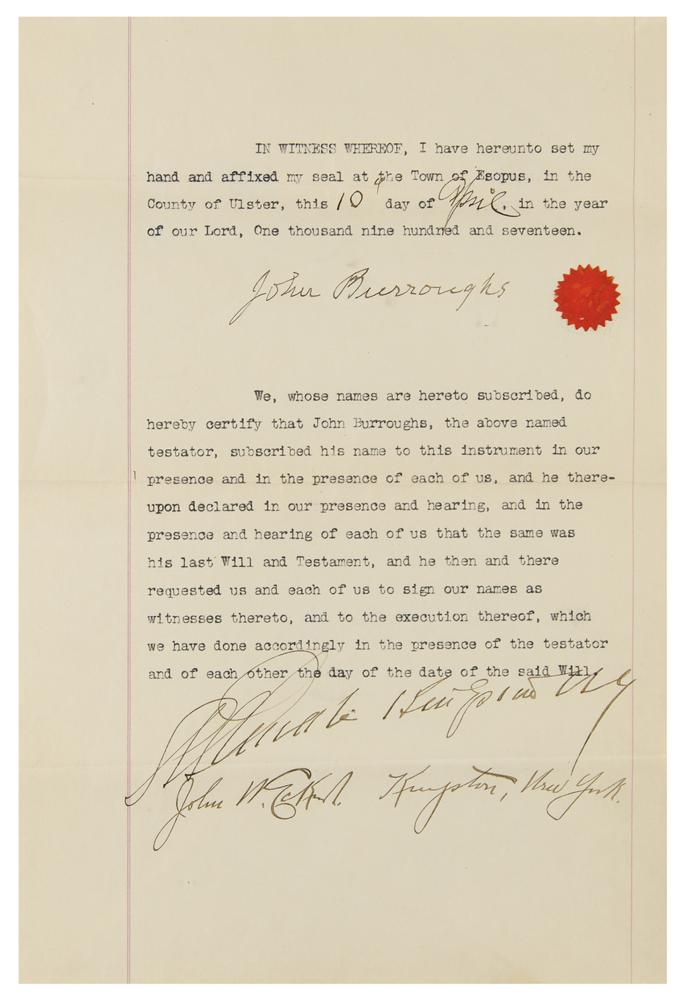 IN WITNESS WHEREOF, I have hereunto set my
hand and affixed my seal at the Town of Esopus, in the
County of Ulster, this 10 day of April, in the year
of our Lord, One thousand nine hundred and seventeen.
John Burroughs
We, whose names are hereto subscribed, do
hereby certify that John Burroughs, the above named
testator, subscribed his name to this instrument in our
presence and in the presence of each of us, and he there-
upon declared in our presence and hearing, and in the
presence and hearing of each of us that the same was
his last Will and Testament, and he then and there
requested us and each of us to sign our names as
witnesses thereto, and to the execution thereof, which
we have done accordingly in the presence of the testator
and of each other the day of the date of the said Will.
Kingston NY
John W. Eckert. Kingston, New York.